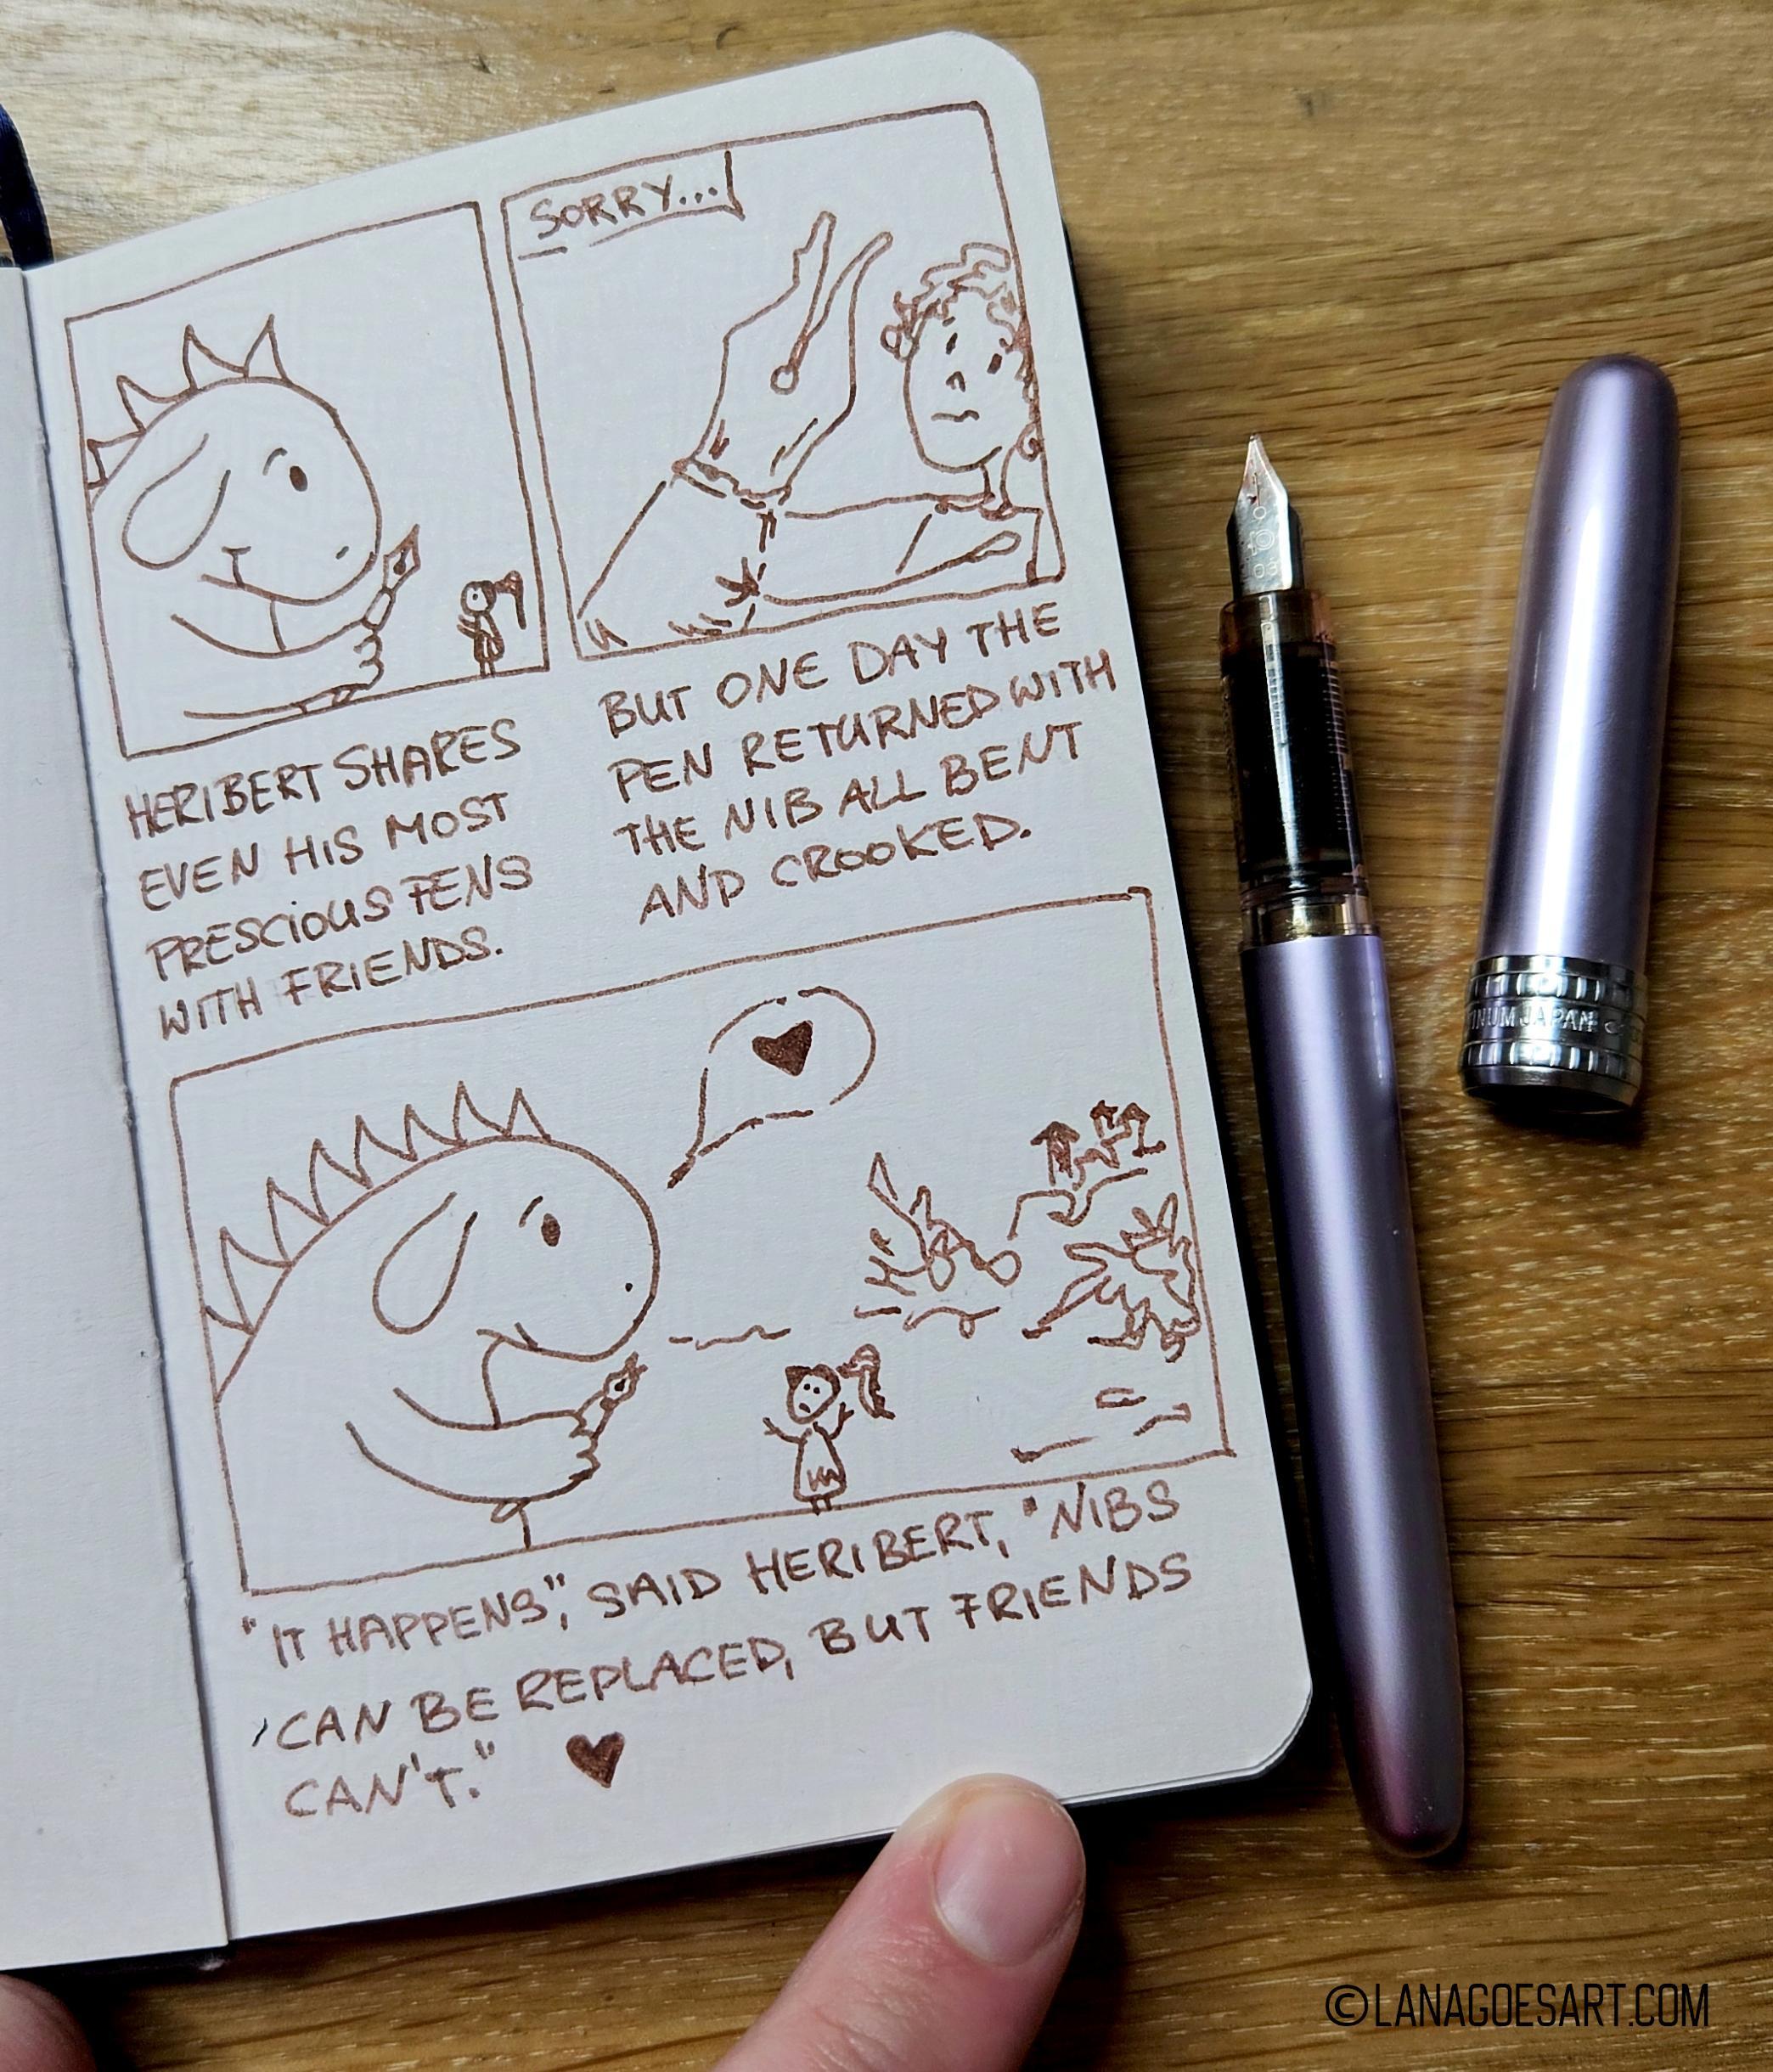 SORRY...
HERIBERT SHARES
EVEN HIS MOST
PRESCIOUS PENS
WITH FRIENDS.
BUT ONE DAY THE
PEN RETURNED WITH
THE NIB ALL BENT
AND CROOKED.
"IT HAPPENS", SAID HERIBERT, "NIBS
CAN BE REPLACED, BUT FRIENDS
CAN'T."
03
TINUM JAPAN
©LANAGOESART.COM